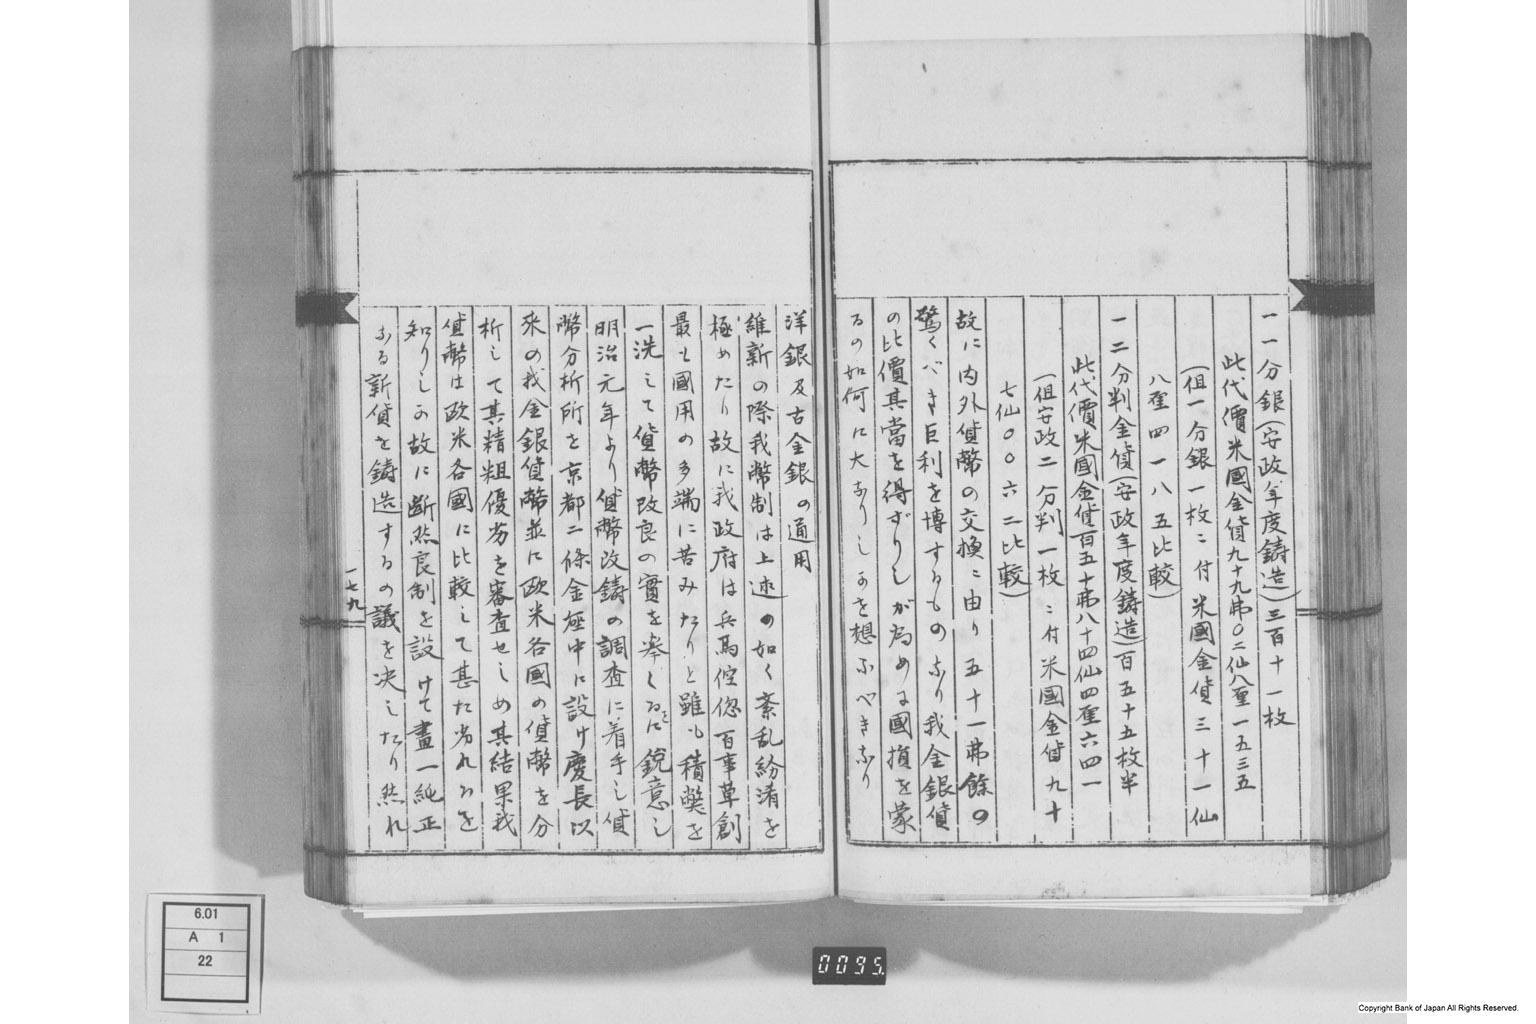 一一分銀(安政年度鑄造)三百十一枚
此代價米國金貨九十九弗〇二仙八厘一五三五
(但一分銀一枚ニ付米國金貨三十一仙
八厘四一八五比較)
一二分判金貨(安政年度鑄造)百五十五枚半
此代價米國金貨百五十弗八十四仙四厘六四一
(但安政二分判一枚ニ付米國金貨九十
七仙〇〇六二比較)
故に内外貨幣の交換ニ由り五十一弗餘の
驚くべき巨利を博するもの なり我金銀貨
の比價其當を得ずりしが為めに國損を蒙
るの如何に大なりしかを想ふべきなり
洋銀及古金銀の通用
維新の際我幣制は上述の如く紊乱紛淆を
極めたり故に我政府は兵馬倥偬百事草創
最も國用の多端に苦みたりと雖も積弊を
一洗して貨幣改良の實を挙くるに鋭意し
明治元年より貨幣改鑄の調査に着手し貨
幣分析所を京都二條金座中に設け慶長以
来の我金銀貨幣並に欧米各國の貨幣を分
析して其精粗優劣を審査せしめ其結果我
貨幣は欧米各國に比較して甚た劣れるを
知りしか故に断然良制を設けて畫一純正
なる新貨を鑄造するの議を决したり然れ
一七九
6.01
A 1
22
0095.
Copyright Bank of Japan All Rights Reserved.